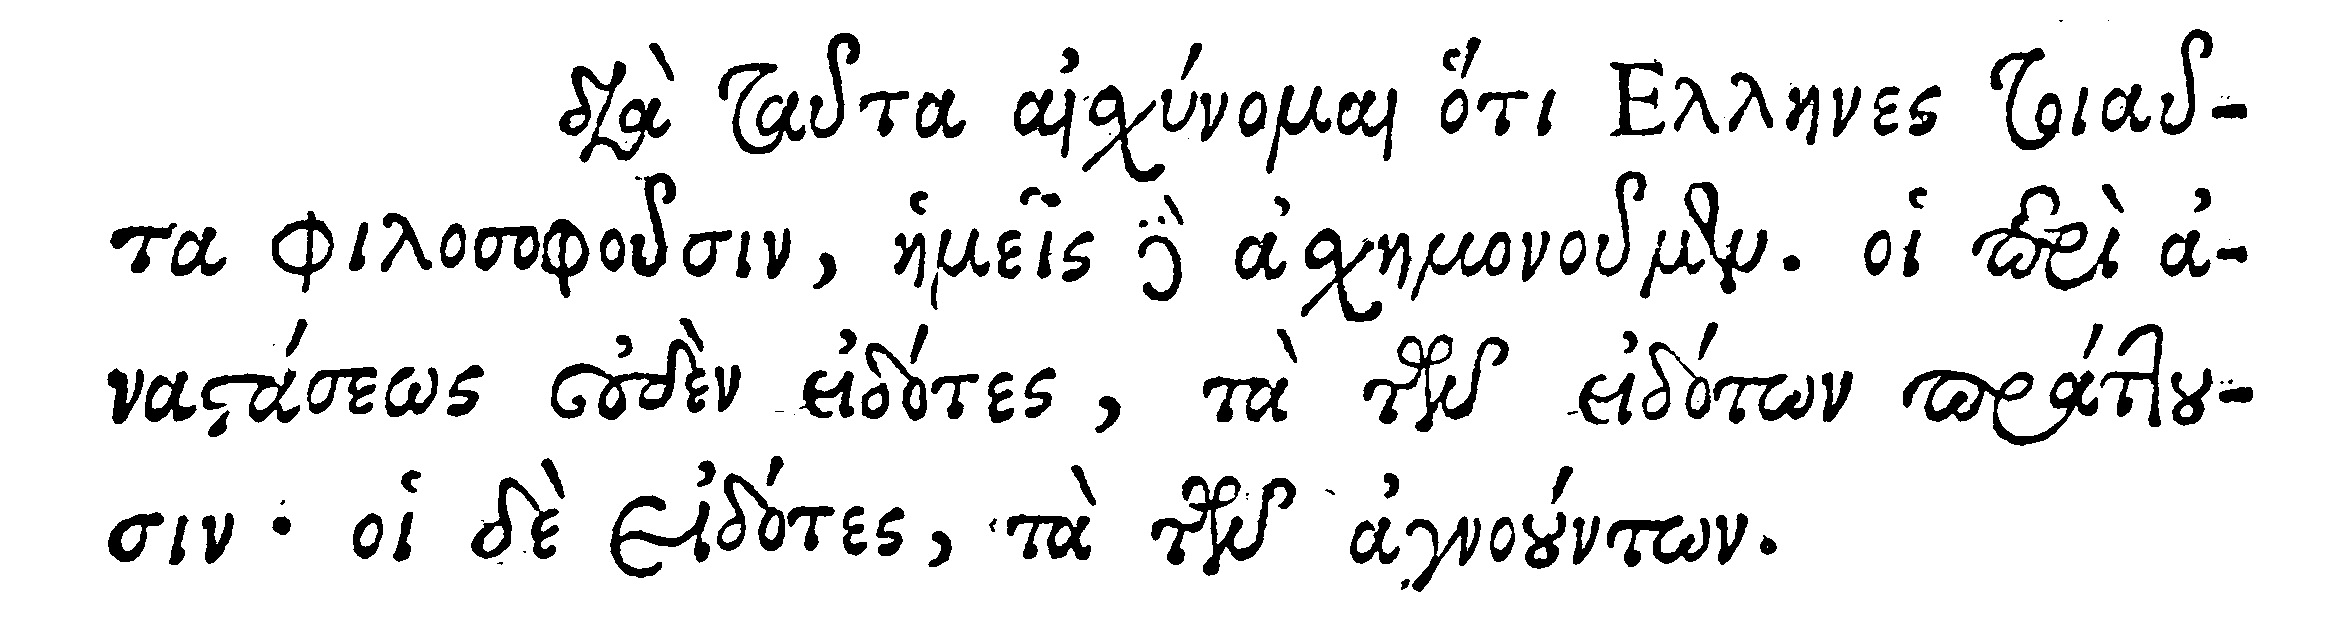 διὰ ταῦτα αἰσχύνομαι ὅτι Ελληνες τοιαῦ-
τα φιλοσοφοῦσιν, ἡμεῖς δὲ ἀσχημονοῦμεν. οἱ περὶ ἀ-
ναστάσεως οὐδὲν εἰδότες, τὰ τῶν εἰδότων πράττου-
σιν· οἱ δὲ εἰδότες, τὰ τῶν ἀγνούντων.